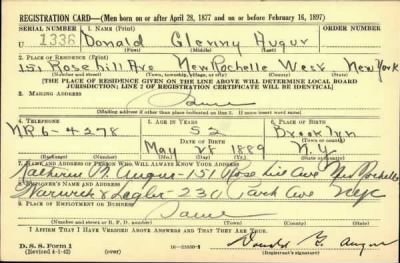 REGISTRATION CARD—(Men born on or after April 28, 1877 and on or before February 16, 1897)
SERIAL NUMBER 1. NAME (Print) ORDER NUMBER
U 1336 Donald Glenny Augur
(First) (Middle) (Last)
2. PLACE OF RESIDENCE (Print)
151 Rose hill Ave New Rochelle West New York
(Number and street) (Town, township, village, or city) (County) (State)
[THE PLACE OF RESIDENCE GIVEN ON THE LINE ABOVE WILL DETERMINE LOCAL BOARD
JURISDICTION; LINE 2 OF REGISTRATION CERTIFICATE WILL BE IDENTICAL]
3. MAILING ADDRESS
Same
(Mailing address if other than place indicated on line 2. If same insert word same)
4. TELEPHONE 5. AGE IN YEARS 6. PLACE OF BIRTH
NR 6-4278 52 Brooklyn
DATE OF BIRTH (Town or county)
May 28 1889 N.Y.
(Exchange) (Number) (Mo.) (Day) (Yr.) (State or country)
7. NAME AND ADDRESS OF PERSON WHO WILL ALWAYS KNOW YOUR ADDRESS
Katherine Augur-151 Rose hill Ave New Rochelle
8. EMPLOYER'S NAME AND ADDRESS
Warwick & Legler-230 Park Ave NYC
9. PLACE OF EMPLOYMENT OR BUSINESS
Same
(Number and street or R. F. D. number) (Town) (County) (State)
I AFFIRM THAT I HAVE VERIFIED ABOVE ANSWERS AND THAT THEY ARE TRUE.
D. S. S. Form 1 Donald G. Augur
(Revised 4-1-42) (Registrant's signature)